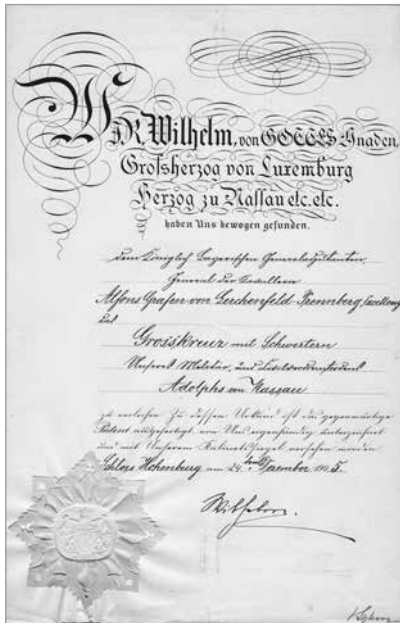 WIR Wilhelm, von GOTTES Gnaden
Grossherzog von Luxemburg
Herzog zu Nassau etc. etc.
haben Uns bewogen gefunden.
dem Königlich Bayerischen Generaladjutanten,
General der Kavallerie
Alfons Grafen von Lerchenfeld-Prennberg, Exzellenz
das
Grosskreuz mit Schwertern
Unseres Militär- und Civilverdienstordens
Adolphs von Nassau
zu verleihen. Zu dessen Urkund ist das gegenwärtige
Patent ausgefertigt, von Uns eigenhändig unterzeichnet
und mit Unserem Kabinetssiegel versehen worden.
Schloss Hohenburg am 24. ten Dezember 1905.
Wilhelm.